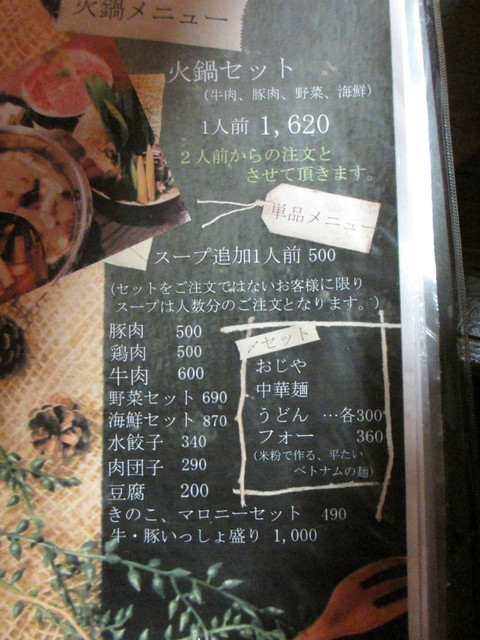 火鍋メニュー
火鍋セット
(牛肉、豚肉、野菜、海鮮)
1人前 1,620
2人前からの注文と
させて頂きます。
単品メニュー
スープ追加1人前 500
(セットをご注文ではないお客様に限り
スープは人数分のご注文となります。)
豚肉 500
鶏肉 500
牛肉 600
野菜セット 690
海鮮セット 870
水餃子 340
肉団子 290
豆腐 200
きのこ、マロニーセット 490
牛・豚いっしょ盛り 1,000
〆セット
おじや
中華麺
うどん …各300
フォー 360
(米粉で作る、平たい
ベトナムの麺)